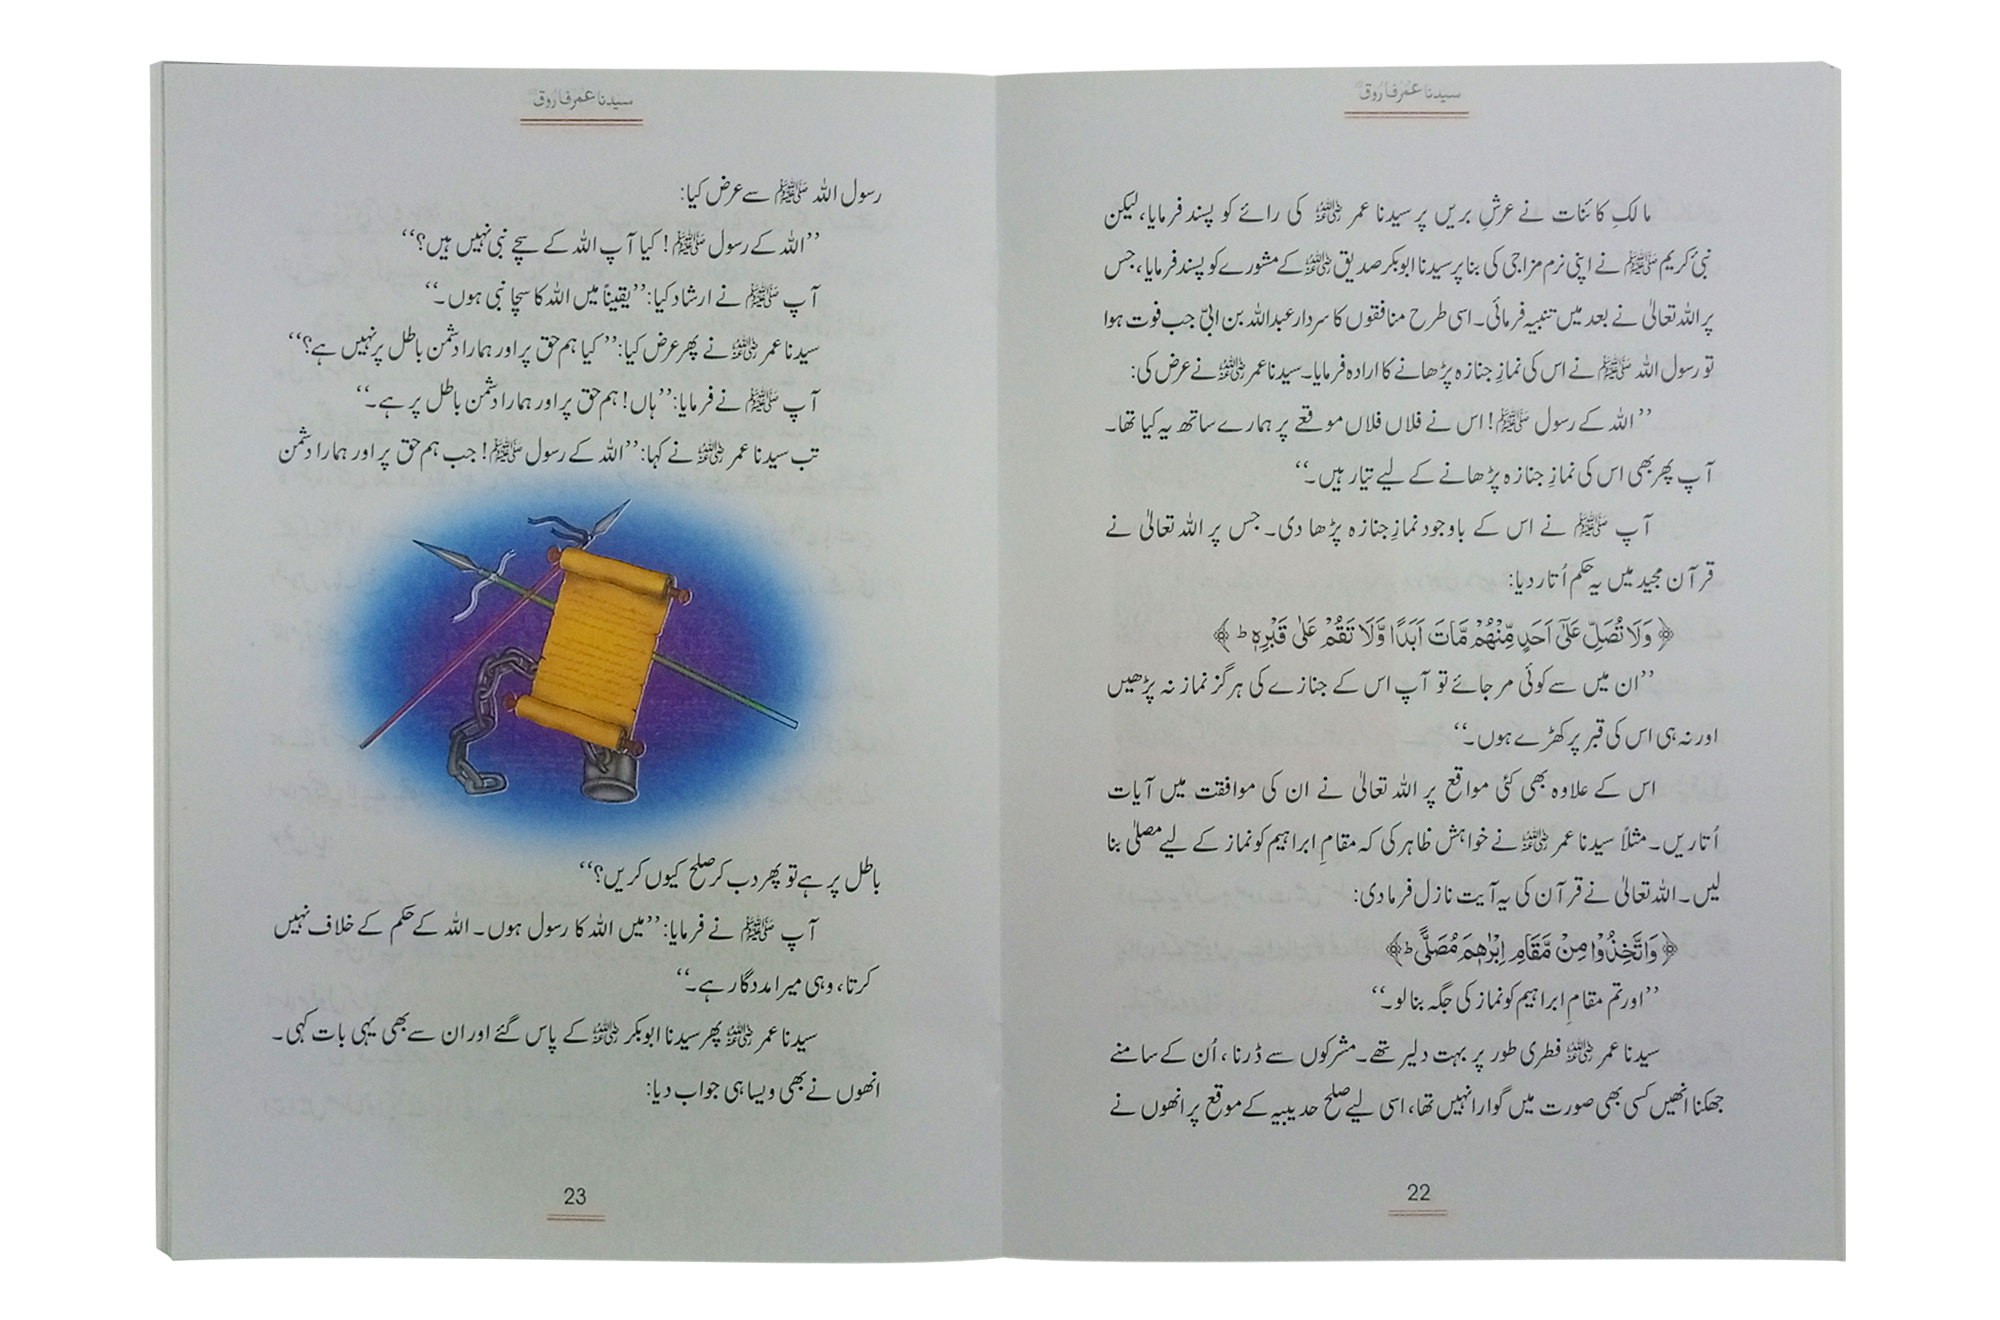 سیدنا عمر فاروقؓ
مالکِ کائنات نے عرشِ بریں پر سیدنا عمر رضی اللہ عنہ کی رائے کو پسند فرمایا، لیکن
نبیٔ کریم ﷺ نے اپنی نرم مزاجی کی بنا پر سیدنا ابوبکر صدیق رضی اللہ عنہ کے مشورے کو پسند فرمایا، جس
پر اللہ تعالیٰ نے بعد میں تنبیہ فرمائی۔ اسی طرح منافقوں کا سردار عبداللہ بن ابیّ جب فوت ہوا
تو رسول اللہ ﷺ نے اس کی نمازِ جنازہ پڑھانے کا ارادہ فرمایا۔ سیدنا عمر رضی اللہ عنہ نے عرض کی:
’’اللہ کے رسول ﷺ! اس نے فلاں فلاں موقعے پر ہمارے ساتھ یہ کیا تھا۔
آپ پھر بھی اس کی نمازِ جنازہ پڑھانے کے لیے تیار ہیں۔‘‘
آپ ﷺ نے اس کے باوجود نمازِ جنازہ پڑھا دی۔ جس پر اللہ تعالیٰ نے
قرآن مجید میں یہ حکم اُتار دیا:
﴿وَلَا تُصَلِّ عَلٰٓى اَحَدٍ مِّنْهُمْ مَّاتَ اَبَدًا وَّلَا تَقُمْ عَلٰى قَبْرِهٖ ؕ﴾
’’ان میں سے کوئی مر جائے تو آپ اس کے جنازے کی ہرگز نماز نہ پڑھیں
اور نہ ہی اس کی قبر پر کھڑے ہوں۔‘‘
اس کے علاوہ بھی کئی مواقع پر اللہ تعالیٰ نے ان کی موافقت میں آیات
اُتاریں۔ مثلاً سیدنا عمر رضی اللہ عنہ نے خواہش ظاہر کی کہ مقامِ ابراہیم کو نماز کے لیے مصلیٰ بنا
لیں۔ اللہ تعالیٰ نے قرآن کی یہ آیت نازل فرما دی:
﴿وَاتَّخِذُوْا مِنْ مَّقَامِ اِبْرٰهٖمَ مُصَلًّى ؕ﴾
’’اور تم مقامِ ابراہیم کو نماز کی جگہ بنا لو۔‘‘
سیدنا عمر رضی اللہ عنہ فطری طور پر بہت دلیر تھے۔ مشرکوں سے ڈرنا، اُن کے سامنے
جھکنا انھیں کسی بھی صورت میں گوارا نہیں تھا، اسی لیے صلح حدیبیہ کے موقع پر انھوں نے
22
سیدنا عمر فاروقؓ
رسول اللہ ﷺ سے عرض کیا:
’’اللہ کے رسول ﷺ! کیا آپ اللہ کے سچے نبی نہیں ہیں؟‘‘
آپ ﷺ نے ارشاد کیا: ’’یقیناً میں اللہ کا سچا نبی ہوں۔‘‘
سیدنا عمر رضی اللہ عنہ نے پھر عرض کیا: ’’کیا ہم حق پر اور ہمارا دشمن باطل پر نہیں ہے؟‘‘
آپ ﷺ نے فرمایا: ’’ہاں! ہم حق پر اور ہمارا دشمن باطل پر ہے۔‘‘
تب سیدنا عمر رضی اللہ عنہ نے کہا: ’’اللہ کے رسول ﷺ! جب ہم حق پر اور ہمارا دشمن
باطل پر ہے تو پھر دب کر صلح کیوں کریں؟‘‘
آپ ﷺ نے فرمایا: ’’میں اللہ کا رسول ہوں۔ اللہ کے حکم کے خلاف نہیں
کرتا، وہی میرا مددگار ہے۔‘‘
سیدنا عمر رضی اللہ عنہ پھر سیدنا ابوبکر رضی اللہ عنہ کے پاس گئے اور ان سے بھی یہی بات کہی۔
انھوں نے بھی ویسا ہی جواب دیا:
23